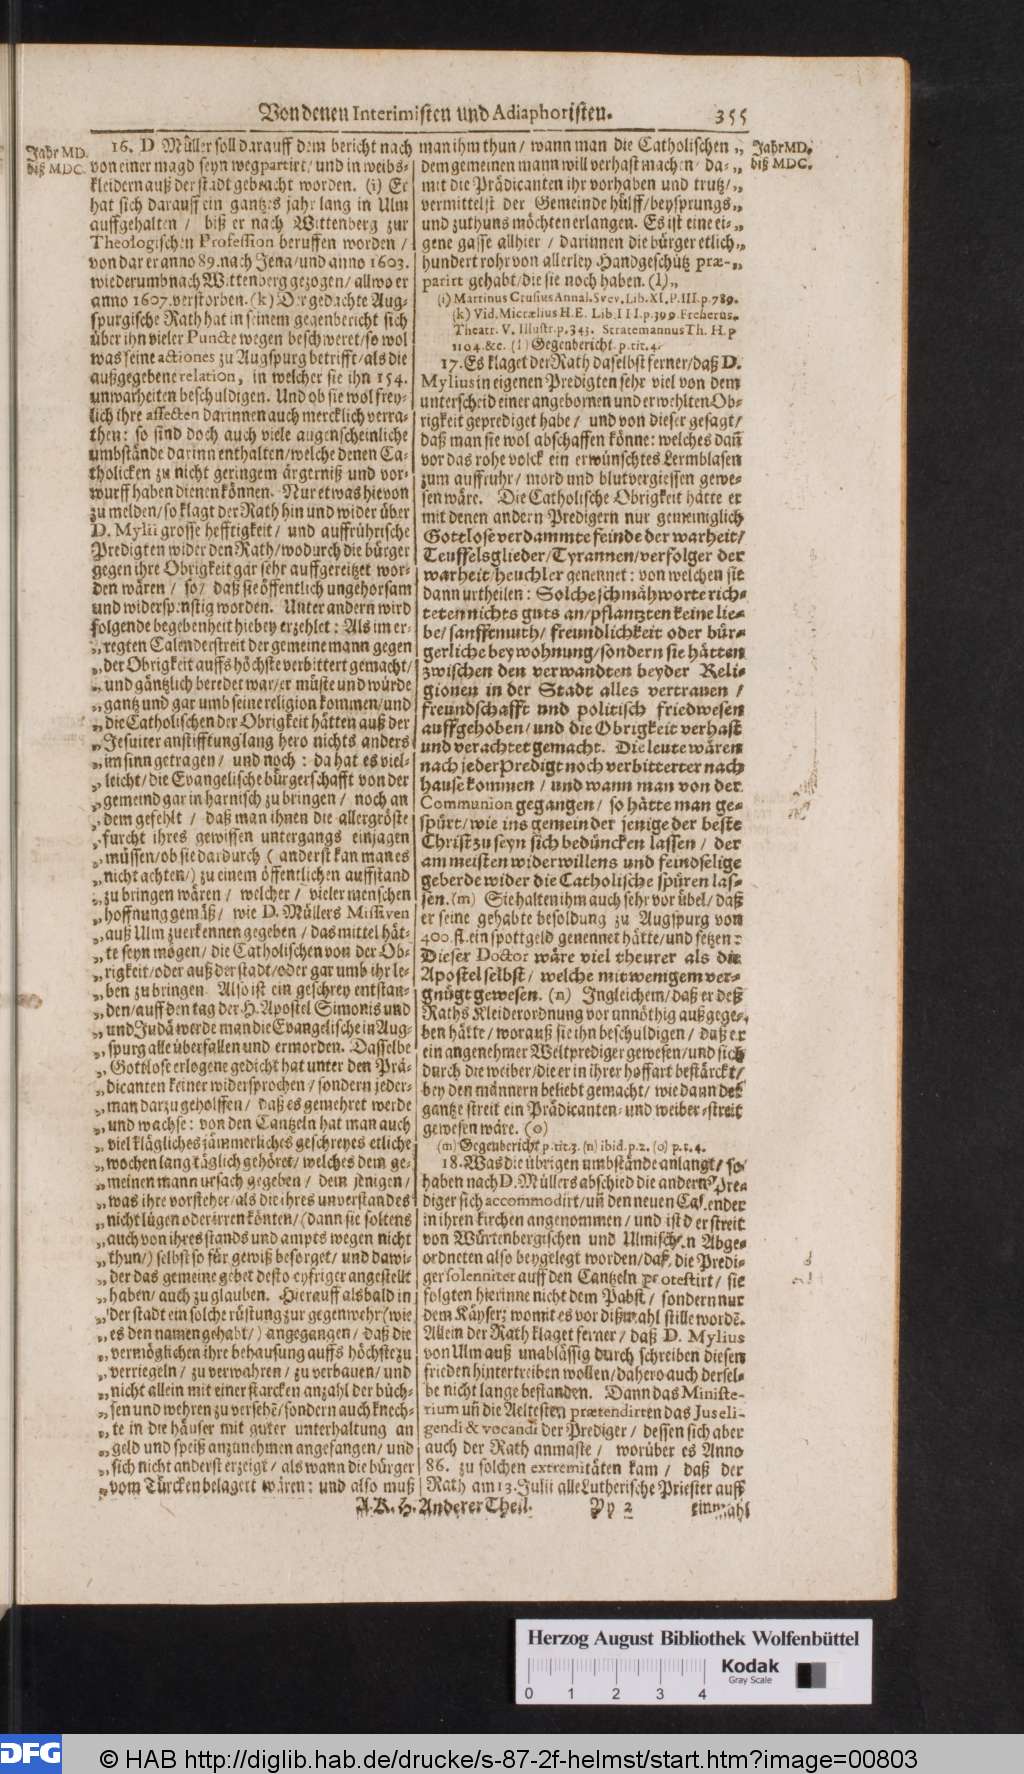 Von denen Interimisten und Adiaphoristen.
355
Jahr MD.
biß MDC.
16. D Müller soll darauff dem bericht nach
von einer magd seyn wegpartirt/ und in weibs-
kleidern auß der stadt gebracht worden. (i) Er
hat sich darauff ein gantzes jahr lang in Ulm
auffgehalten / biß er nach Wittenberg zur
Theologischen Profession beruffen worden /
von dar er anno 89. nach Jena/und anno 1603.
wiederumb nach Wittenberg gezogen/ allwo er
anno 1607. verstorben. (k) Der gedachte Aug-
spurgische Rath hat in seinem gegenbericht sich
über ihn vieler Puncte wegen beschweret/so wol
was seine actiones zu Augspurg betrifft/als die
außgegebene relation, in welcher sie ihn 154.
unwarheiten beschuldigen. Und ob sie wol frey-
lich ihre affecten darinnen auch mercklich verra-
then: so sind doch auch viele augenscheinliche
umbstände darinn enthalten/welche denen Ca-
tholicken zu nicht geringem ärgerniß und vor-
wurff haben dienen können. Nur etwas hievon
zu melden/so klagt der Rath hin und wider über
D. Mylii grosse hefftigkeit/ und auffrührische
Predigten wider den Rath/wodurch die bürger
gegen ihre Obrigkeit gar sehr auffgereitzet wor-
den wären / so/ daß sie öffentlich ungehorsam
und widerspenstig worden. Unter andern wird
folgende begebenheit hiebey erzehlet: Als im er-
„regten Calenderstreit der gemeine mann gegen
„der Obrigkeit auffs höchste verbittert gemacht/
„und gäntzlich beredet war/er müste und würde
„gantz und gar umb seine religion kommen/und
„die Catholischen der Obrigkeit hätten auß der
„Jesuiter anstifftung lang hero nichts anders
„im sinn getragen/ und noch: da hat es viel-
„leicht/die Evangelische bürgerschafft von der
„gemeind gar in harnisch zu bringen / noch an
„dem gefehlt / daß man ihnen die allergröste
„furcht ihres gewissen untergangs einjagen
„müssen/ob sie dardurch ( anderst kan man es
„nicht achten/) zu einem öffentlichen auffstand
„zu bringen wären / welcher / vieler menschen
„hoffnung gemäß/ wie D. Müllers Missiven
„auß Ulm zuerkennen gegeben / das mittel hät-
„te seyn mögen/ die Catholischen von der Ob-
„rigkeit/oder auß der stadt/oder gar umb ihr le-
„ben zu bringen. Also ist ein geschrey entstan-
„den/auff den tag der H. Apostel Simonis und
„und Judä werde man die Evangelische in Aug-
„spurg alle überfallen und ermorden. Dasselbe
„Gottlose erlogene gedicht hat unter den Prä-
„dicanten keiner widersprochen/ sondern jeder-
„man darzu geholffen / daß es gemehret werde
„und wachse: von den Cantzeln hat man auch
„viel klägliches jämmerliches geschreyes etliche
„wochen lang täglich gehöret/ welches dem ge-
„meinen mann ursach gegeben / dem jenigen/
„was ihre vorsteher/als die ihres unverstandes
„nicht lügen oder irren könten/(dann sie soltens
„auch von ihres stands und ampts wegen nicht
„thun/) selbst so für gewiß besorget/ und dawi-
„der das gemeine gebet desto eyfriger angestellt
„haben/ auch zu glauben. Hierauff alsbald in
„der stadt ein solche rüstung zur gegenwehr (wie
„es den namen gehabt/) angegangen/ daß die
„vermöglichen ihre behausung auffs höchste zu
„verriegeln / zu verwahren / zu verbauen/ und
„nicht allein mit einer starcken anzahl der büch-
„sen und wehren zu versehē/sondern auch knech-
„te in die häuser mit guter unterhaltung an
„geld und speiß anzunehmen angefangen/ und
„sich nicht anderst erzeigt/ als wann die bürger
„vom Türcken belagert wären: und also muß
man ihm thun/ wann man die Catholischen „
dem gemeinen mann will verhast machen/ da-„
mit die Prädicanten ihr vorhaben und trutz/„
vermittelst der Gemeinde hülff/beysprungs„
und zuthuns möchten erlangen. Es ist eine ei-„
gene gasse allhier / darinnen die bürger etlich„
hundert rohr von allerley Handgeschütz præ-„
parirt gehabt/die sie noch haben. (l)„
Jahr MD.
biß MDC.
(i) Martinus Crusius Annal. Svev. Lib. XI. P. III. p. 789.
(k) Vid. Micrælius H. E. Lib. III. p. 399 Freherus.
Theatr. V. Illustr. p. 343. Stratemannus Th. H. p
1104. &c. (l) Gegenbericht. p. tit. 4.
17. Es klaget der Rath daselbst ferner/daß D.
Mylius in eigenen Predigten sehr viel von dem
unterscheid einer angebornen und erwehlten Ob-
rigkeit geprediget habe/ und von dieser gesagt/
daß man sie wol abschaffen könne: welches dañ
vor das rohe volck ein erwünschtes Lermblasen
zum auffruhr/ mord und blutvergiessen gewe-
sen wäre. Die Catholische Obrigkeit hätte er
mit denen andern Predigern nur gemeiniglich
Gottlose verdammte feinde der warheit/
Teuffelsglieder/Tyrannen/verfolger der
warheit/heuchler genennet: von welchen sie
dann urtheilen: Solche schmähworte rich-
teten nichts guts an/pflantzten keine lie-
be/sanfftmuth/ freundlichkeit oder bür-
gerliche beywohnung/sondern sie hätten
zwischen den verwandten beyder Reli-
gionen in der Stadt alles vertrauen /
freundschafft und politisch friedwesen
auffgehoben/und die Obrigkeit verhast
und verachtet gemacht. Die leute wären
nach jeder Predigt noch verbitterter nach
hause kommen / und wann man von der
Communion gegangen/ so hätte man ge-
spürt/wie ins gemein der jenige der beste
Christ zu seyn sich bedüncken lassen / der
am meisten widerwillens und feindselige
geberde wider die Catholische spüren las-
sen. (m) Sie halten ihm auch sehr vor übel/daß
er seine gehabte besoldung zu Augspurg von
400. fl. ein spottgeld genennet hätte/und setzen:
Dieser Doctor wäre viel theurer als die
Apostel selbst/ welche mit wenigem ver-
gnügt gewesen. (n) Ingleichem/daß er deß
Raths Kleiderordnung vor unnöthig außgege-
ben hätte/worauß sie ihn beschuldigen/ daß er
ein angenehmer Weltprediger gewesen/und sich
durch die weiber/die er in ihrer hoffart bestärckt/
bey den männern beliebt gemacht/ wie dann der
gantze streit ein Prädicanten- und weiber-streit
gewesen wäre. (o)
(m) Gegenbericht p. tit. 3. (n) ibid. p. 2. (o) p. 1. 4.
18. Was die übrigen umbstände anlangt/ so
haben nach D. Müllers abschied die andern Pre-
diger sich accommodirt/uñ den neuen Calender
in ihren kirchen angenommen/ und ist der streit
von Würtenbergischen und Ulmischen Abge-
ordneten also beygelegt worden/daß die Predi-
ger solenniter auff den Cantzeln protestirt/ sie
folgten hierinne nicht dem Pabst/ sondern nur
dem Käyser; womit es vor dißmahl stille wordē.
Allein der Rath klaget ferner/ daß D. Mylius
von Ulm auß unablässig durch schreiben diesen
frieden hintertreiben wollen/dahero auch dersel-
be nicht lange bestanden. Dann das Ministe-
rium uñ die Aeltesten prætendirten das Jus eli-
gendi & vocandi der Prediger/ dessen sich aber
auch der Rath anmaste/ worüber es Anno
86. zu solchen extremitäten kam / daß der
Rath am 13. Julii alle Lutherische Priester auff
A. K. H. Anderer Theil.
Yy 2
einmahl
Herzog August Bibliothek Wolfenbüttel
Kodak
Gray Scale
0 1 2 3 4
DFG
© HAB http://diglib.hab.de/drucke/s-87-2f-helmst/start.htm?image=00803